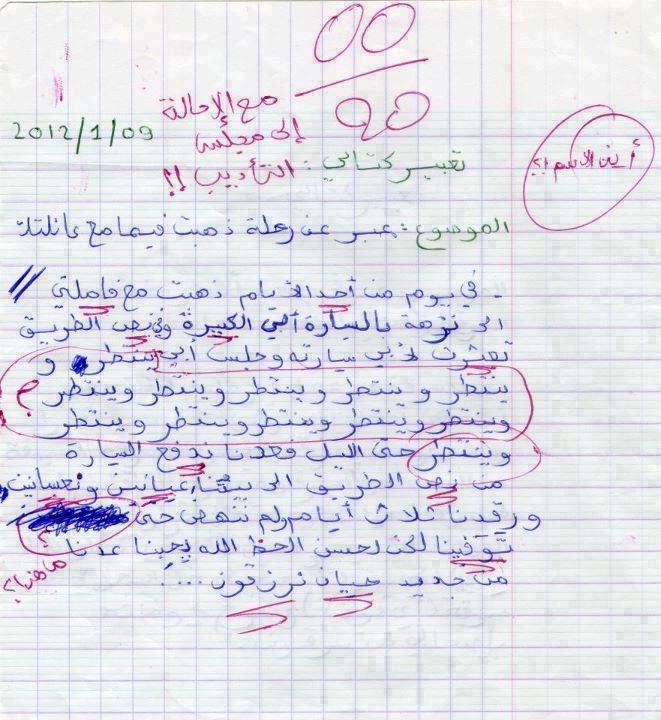 00
20
مع الإحالة
إلى مجلس
التأديب !!
2012/1/09
أين الاسم !؟
تعبير كتابي :
الموضوع : عبر عن رحلة ذهبت فيها مع عائلتك
- في يوم من أحد الأيام ذهبت مع فاملتي
الى نزهة بالسيارة أبي الكبيرة وفي نص الطريق
تعثرت لأبي سيارته وجلس أبي ينتظر و
ينتظر وينتظر وينتظر وينتظر وينتظر ؟
وينتظر وينتظر وينتظر وينتظر وينتظر
وينتظر حتى اليل فعدنا ندفع السيارة
من نص الطريق الى بيتنا عيانين ونعسانين
ورقدنا ثلاث أيام ولم ننهض حتى
توفينا لكن لحسن الحظ الله يحبنا عدنا
من جديد حيان نرزقون ....
ما هذا !؟